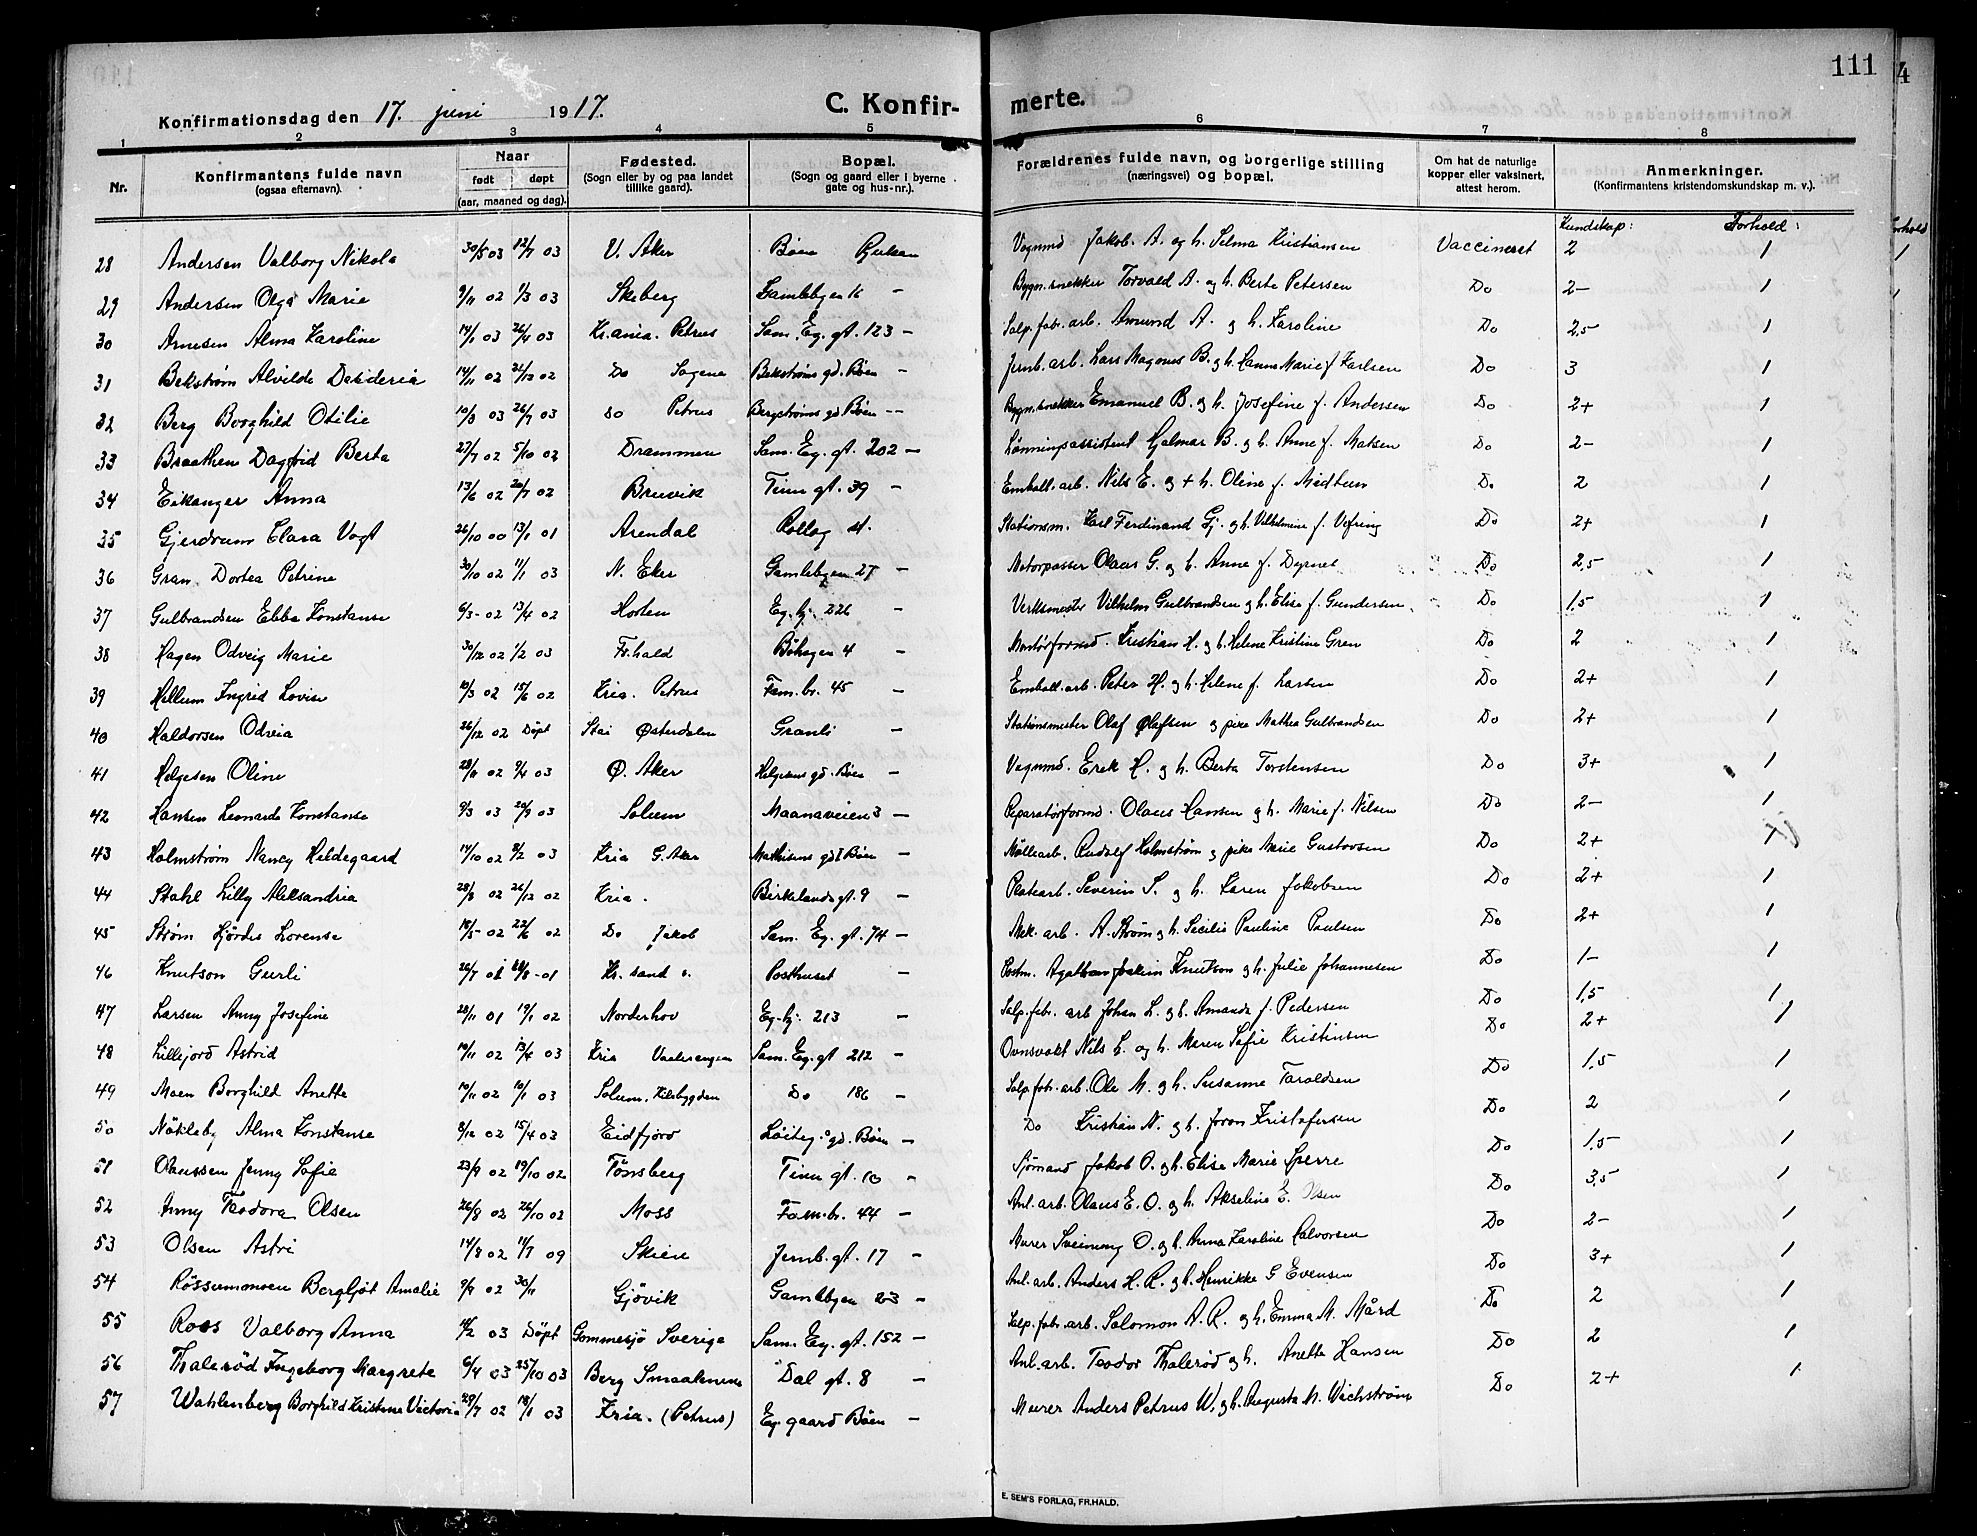 111
4
Konfirmationsdag den 17. juni 1917.
C. Konfir- merte.
1 2 3 4 5 6 7 8
Nr. Konfirmantens fulde navn (ogsaa efternavn). Naar født døpt (aar, maaned og dag). Fødested. (Sogn eller by og paa landet tillike gaard). Bopæl. (Sogn og gaard eller i byerne gate og hus-nr.). Forældrenes fulde navn, og borgerlige stilling (næringsvei) og bopæl. Om hat de naturlige kopper eller vaksinert, attest herom. Anmerkninger. (Konfirmantens kristendomskundskap m. v.).
Kundskap: Forhold:
28 Andersen Valborg Nikola 30/5 03 12/7 03 V. Aker Böen Rjukan Vognmd Jakob. A. og h. Selma Kristiansen Vaccineret 2 1
29 Andersen Olga Marie 9/11 02 1/3 03 Skeberg Gamlebyen 16 – Bygn. snekker Torvald A. og h. Berte Petersen Do 2– 1
30 Arnesen Alma Karoline 14/1 03 26/4 03 Kr.ania. Petrus Sam. Eg. gt. 123 – Salp. fab. arb. Amund A. g h. Karoline Do 2,5 1
31 Bekstrøm Alvilde Desideria 14/11 02 26/12 02 Do Sagene Bekströms gd. Böen – Jernb. arb. Lars Magnus B. g h. Hanna Marie f Karlsen Do 3 1
32 Berg Borghild Otilie 10/3 03 26/7 03 do Petrus Bergströms gd Böen – Bygn. snekker Emanuel B. g h. Josefine f. Andersen Do 2+ 1
33 Braathen Dagfrid Berta 27/7 02 5/10 02 Drammen Sam. Eg. gt. 202 – Lønningsassistent Hjalmar B. g h. Anne f. Matsen Do 2– 1
34 Eikanger Anna 13/6 02 20/7 02 Bruvik Tinn gt. 39 – Emball. arb. Nils E. g + h. Oline f. Midttun Do 2 1
35 Gjerdrum Clara Vogt 26/10 00 13/1 01 Arendal Rollag st. Stationsm. Karl Ferdinand Gj. g h. Vilhelmine f. Vefring Do 2+ 1
36 Gran. Dortea Petrine 30/10 02 11/1 03 N. Eker Gamlebyen 27 – Motorpasser Olaus G. g h. Anne f. Dyrnes Do 2,5 1
37 Gulbrandsen Ebba Konstanse 6/3 – 02 13/4 02 Horten Eg. hj. 226 – Verksmester Vilhelm Gulbrandsen g h. Elise f. Gundersen Do 1,5 1
38 Hagen Odveig Marie 30/12 02 1/2 03 Fr.hald Böhagen 4 – Montørformd. Kristian H. g h. Helene Kristine Gren Do 2 1
39 Hellum Ingrid Lovise 10/3 02 15/6 02 Kria. Petrus Fam. br. 45 – Emball. arb. Peter H. g h. Helene f. Larsen Do 2+ 1
40 Haldorsen Odveia 26/12 02 Döpt Stai Østerdalen Granli – Stationsmester Olaf Olafsen g pike Mathea Gulbrandsen Do 2+ 1
41 Helgesen Oline 28/11 02 9/4 03 Ø. Aker Helgesens gd. Böen – Vognmd. Erek H. g h. Berta Torstensen Do 3+ 1
42 Hansen Leonarda Konstanse 9/3 03 20/9 03 Solum Maanaveien 3 – Reparatørformd. Olaus Hansen g h. Marie f. Nilsen Do 2– 1
43 Holmstrøm Nancy Hildegaard 14/10 02 8/2 03 Kria G. Aker Mathisens gd Böen – Møllearb. Rudolf Holmstrøm g pike Marie Gustavsen Do 2+ 1
44 Stahl Lilly Aleksandria 28/8 02 26/12 02 Kria. Birkelands gt. 9 – Platearb. Severin S. g h. Karen Jakobsen Do 2+ 1
45 Strøm Hjördis Lovense 18/5 – 02 22/6 02 Do Jakob Sam. Eg. gt. 74 – Mek. arb. A. Strøm g h. Secilie Pauline Paulsen Do 2+ 1
46 Knutson Gurli 26/7 01 – 01 Kr. sand s. Posthuset – Postm. Joakim Knutson g h. Julie Johannesen Do 1– 1
47 Larsen Anny Josefine 28/11 01 19/1 02 Norderhov Eg. hj. 213 – Salp. fabr. arb Johan L. g h. Amanda f. Pedersen Do 1,5 1
48 Lillejord Astrid 10/11 02 13/4 03 Kria Vaalerengen Sam. Eg. gt 212 – Ovnsvakt Nils L. og h. Maren Sofie Kristensen Do 2+ 1
49 Moen Borghild Anette 10/11 02 10/1 03 Solum. Kilebygden Do 186 – Salp. fabr. arb. Ole M. g h. Susanne Taraldsen Do 1,5 1
50 Nökleby Alma Konstanse 8/12 02 15/4 03 Eidfjord gd. Böen – Do Kristian N. g h. Joran Kristofersen Do 2 1
51 Olaussen Jenny Sofie 23/9 02 19/10 02 Tönsberg Tinn gt. 10 – Sjömand Jakob O. g h. Elise Marie Sperre Do 1,5 1
52 Anny Teodora Olsen 26/8 02 26/10 02 Moss Fam. br. 44 – Anl. arb. Olaus E. O. g h. Akseline E. Olsen Do 3,5 1
53 Olsen Astri 14/8 02 11/7 09 Skien Jernb. gt. 17 – Murer Sveinung O. g h. Anna Karoline Halvorsen Do 2– 1
54 Røssummoen Bergljot Amalie 9/9 02 30/11 Gjövik Gamlebyen 23 – Anl. arb. Anders H. R. g h. Henrikke G Evensen Do 3+ 1
55 Roos Valborg Anna 18/2 03 Döpt Gommesjö Sverige Sam. Eg. gt. 152 – Salp. fabr. arb. Solomon A. R. g h. Emma M. Mård Do 2 1
56 Thalerød Ingeborg Margrete 6/4 03 25/10 03 Berg Smaalenene Dal gt. 8 – Anl. arb. Teodor Thalerød g h. Anette Hansen Do 2 1
57 Wahlenberg Borghild Kristene Victoria 29/7 02 18/1 03 Kria. (Petrus) Eg. gaard Böen – Murer Anders Petrus W. g h. Augusta M. Wichstrøm Do 2+ 1
E. SEM'S FORLAG, FR.HALD.